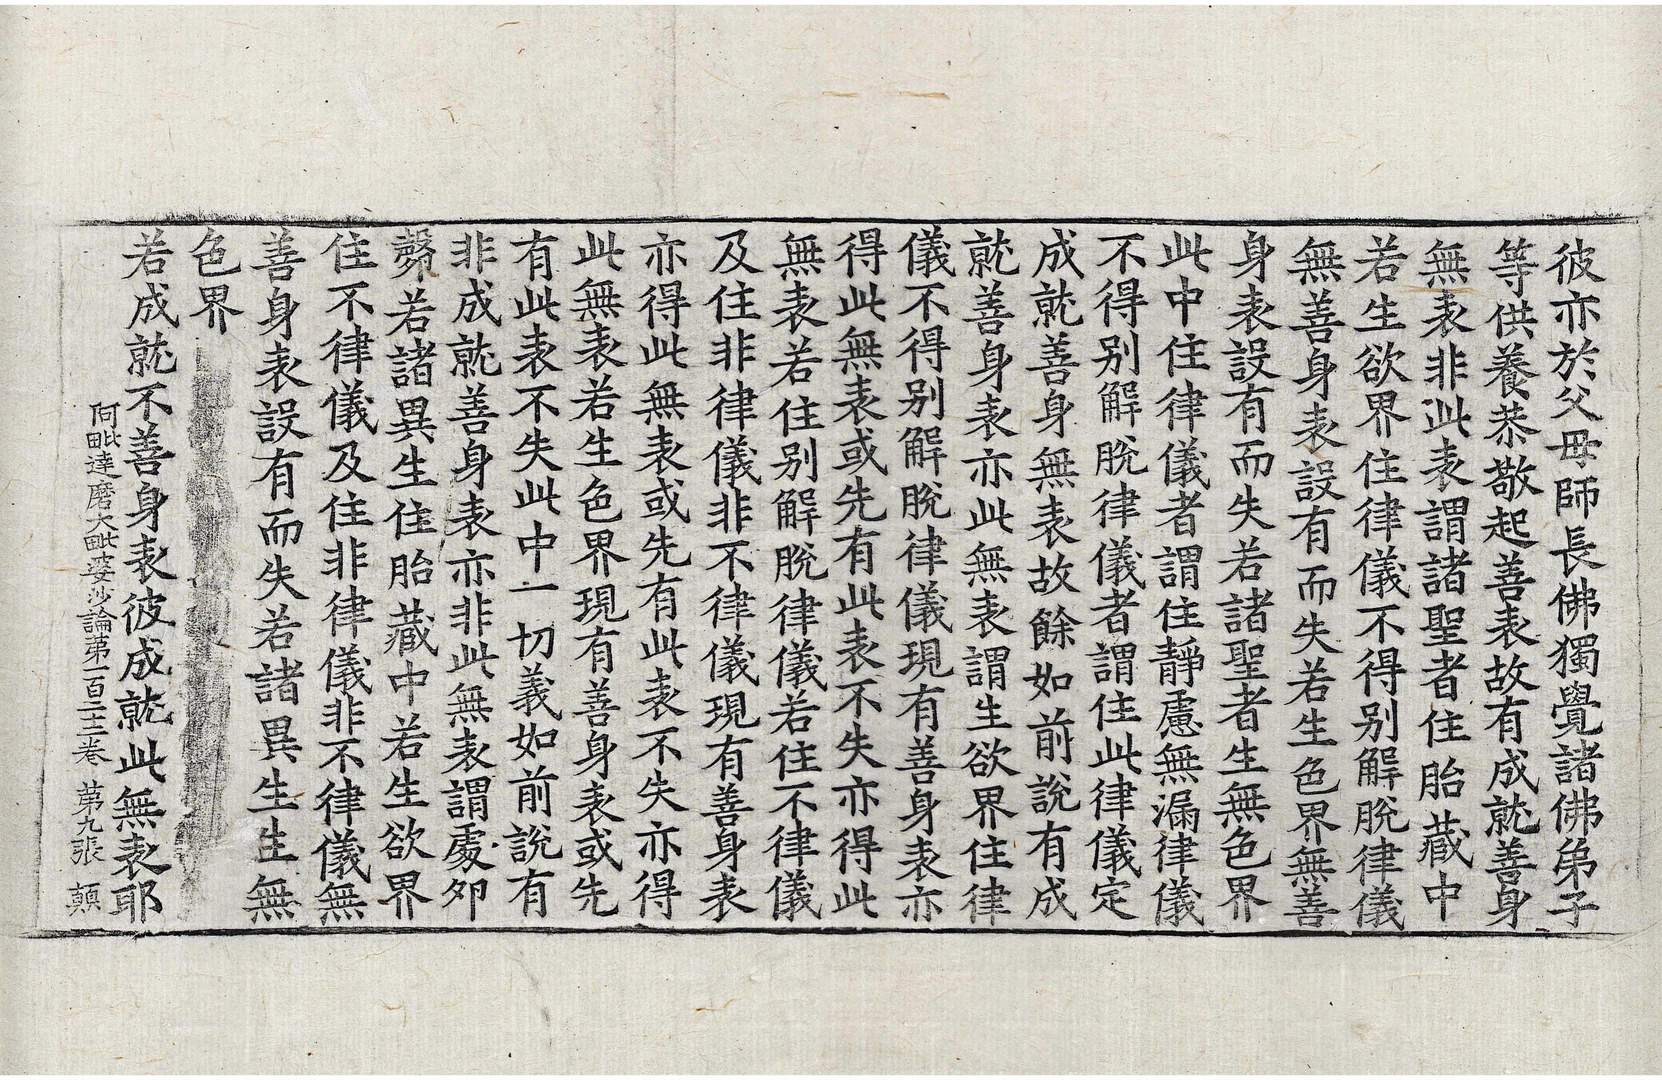 彼亦於父母師長佛獨覺諸佛弟子
等供養恭敬起善表故有成就善身
無表非此表謂諸聖者住胎藏中
若生欲界住律儀不得別解脫律儀
無善身表設有而失若生色界無善
身表設有而失若諸聖者生無色界
此中住律儀者謂住靜慮無漏律儀
不得別解脫律儀者謂住此律儀定
成就善身無表故餘如前說有成
就善身表亦此無表謂生欲界住律
儀不得別解脫律儀現有善身表亦
得此無表或先有此表不失亦得此
無表若住別解脫律儀若住不律儀
及住非律儀非不律儀現有善身表
亦得此無表或先有此表不失亦得
此無表若生色界現有善身表或先
有此表不失此中一切義如前說有
非成就善身表亦非此無表謂處夘
㲉若諸異生住胎藏中若生欲界
住不律儀及住非律儀非不律儀無
善身表設有而失若諸異生生無
色界
若成就不善身表彼成就此無表耶
阿毗達磨大毗婆沙論第一百二十二卷 第九張 顛